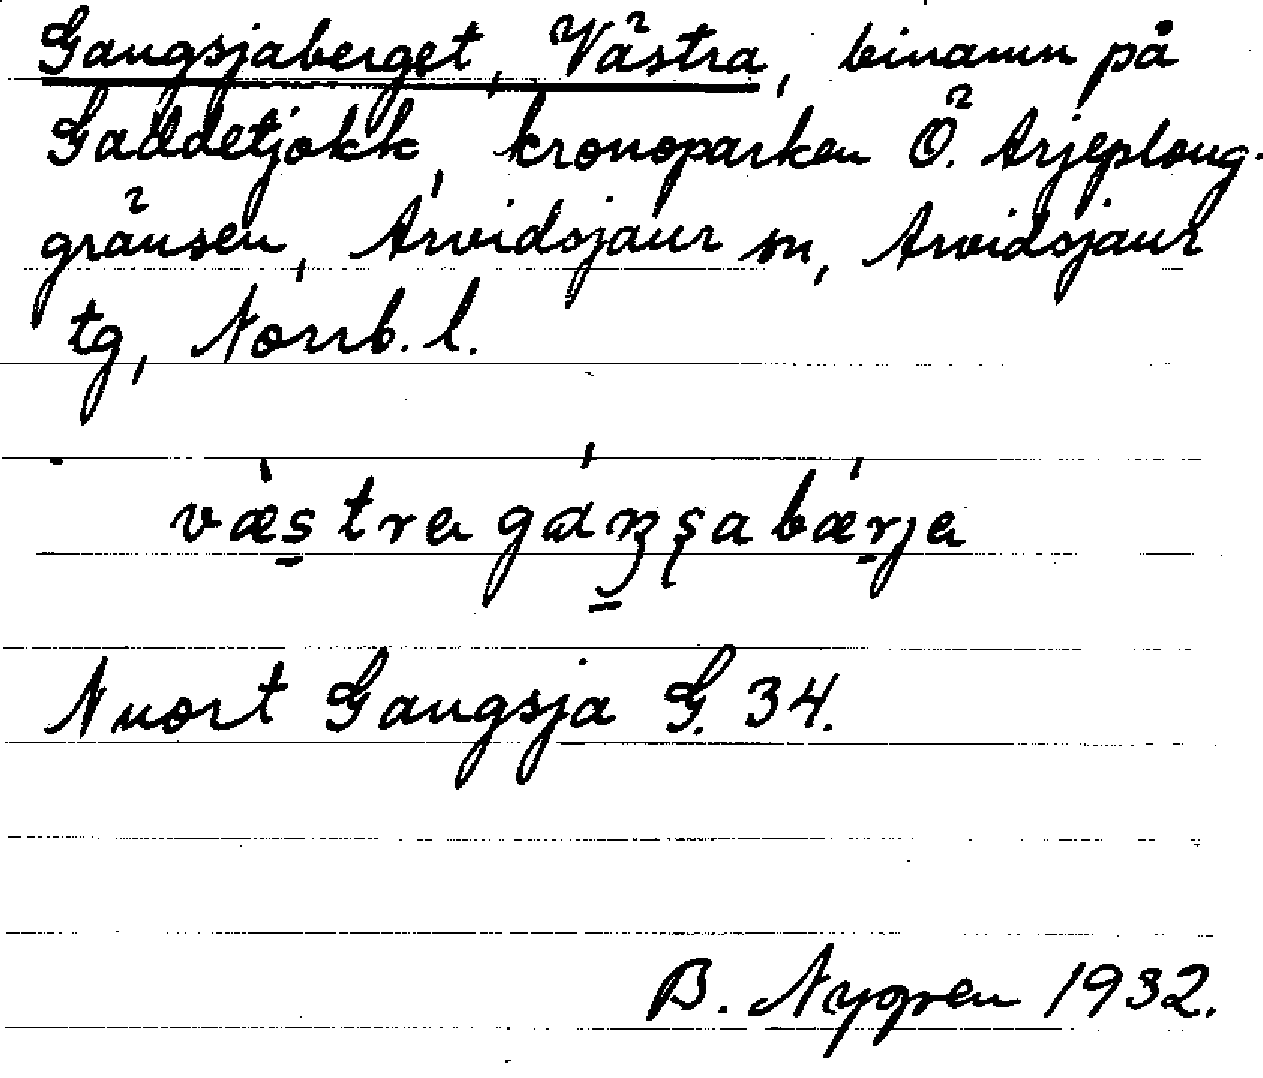 Gangsjaberget, Västra, binamn på
Gaddetjokk, kronoparken Ö. Arjeploug-
gränsen, Arvidsjaur sn, Arvidsjaur
tg, Norrb. l.
væ̀stra gáŋsabǽrja
Nuort Gangsja G. 34.
B. Nygren 1932.